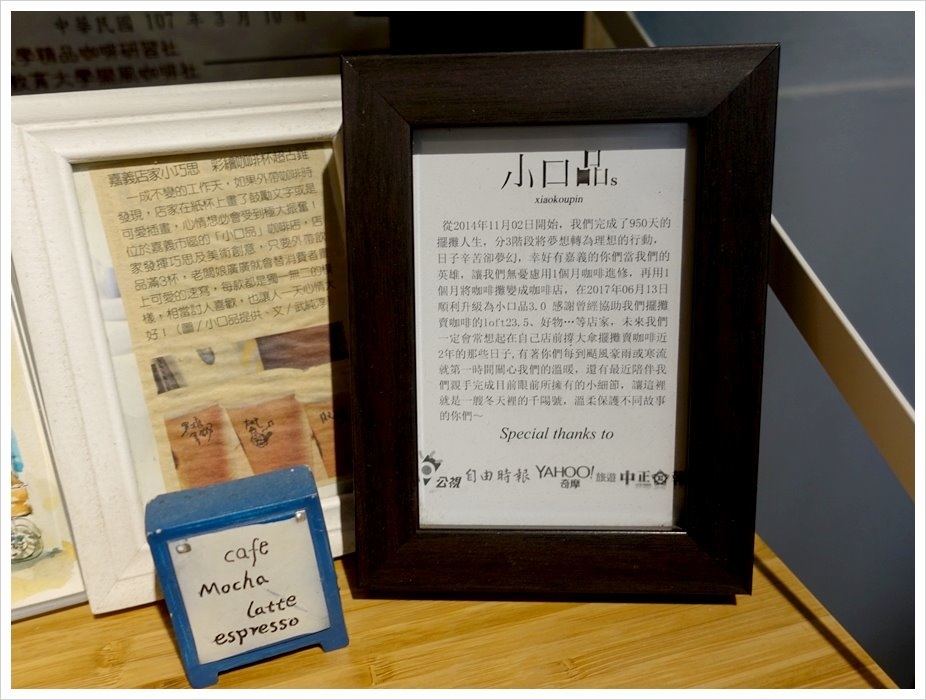 中華民國 107 年 3 月 10 日
學精品咖啡研習社
教育大學
咖啡社
嘉義店家小巧思 彩繪咖啡杯超古錐
一成不變的工作天，如果外帶咖啡時
發現，店家在紙杯上畫了鼓勵文字或是
可愛插畫，心情想必會受到極大振奮！
位於嘉義市區的「小口品」咖啡店，店
家發揮巧思及美術創意，只要外帶飲
品滿3杯，老闆娘廣廣就會替消費者畫
上可愛的速寫，每款都是獨一無二的模
樣，相當討人喜歡，也讓人一天心情大
好！（圖／小口品提供、文／武純淳
小口品s
xiaokoupin
從2014年11月02日開始，我們完成了950天的
擺攤人生，分3階段將夢想轉為理想的行動，
日子辛苦卻夢幻，幸好有嘉義的你們當我們的
英雄，讓我們無憂慮用1個月咖啡進修，再用1
個月將咖啡攤變成咖啡店，在2017年06月13日
順利升級為小口品3.0 感謝曾經協助我們擺攤
賣咖啡的loft23.5、好物…等店家，未來我們
一定會常想起在自己店前撐大傘擺攤賣咖啡近
2年的那些日子,有著你們每到颳風豪雨或寒流
就第一時間關心我們的溫暖，還有最近陪伴我
們親手完成目前眼前所擁有的小細節，讓這裡
就是一艘冬天裡的千陽號，溫柔保護不同故事
的你們～
Special thanks to
公視 自由時報 YAHOO!奇摩 旅遊 中正
cafe
Mocha
latte
espresso